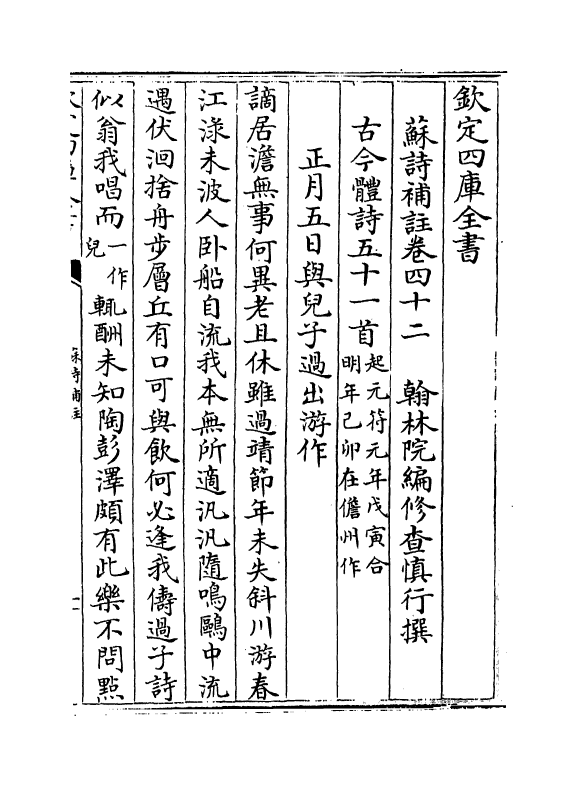 欽定四庫全書
蘇詩補註卷四十二　翰林院編修查慎行撰
古今體詩五十一首起元符元年戊寅合明年己卯在儋州作
正月五日與兒子過出游作
謫居澹無事何異老且休雖過靖節年未失斜川游春
江淥未波人卧船自流我本無所適汎汎隨鳴鷗中流
遇伏洄捨舟步層丘有口可與飲何必逢我儔過子詩
似翁我唱而一作兒輒酬未知陶彭澤頗有此樂不問㸃